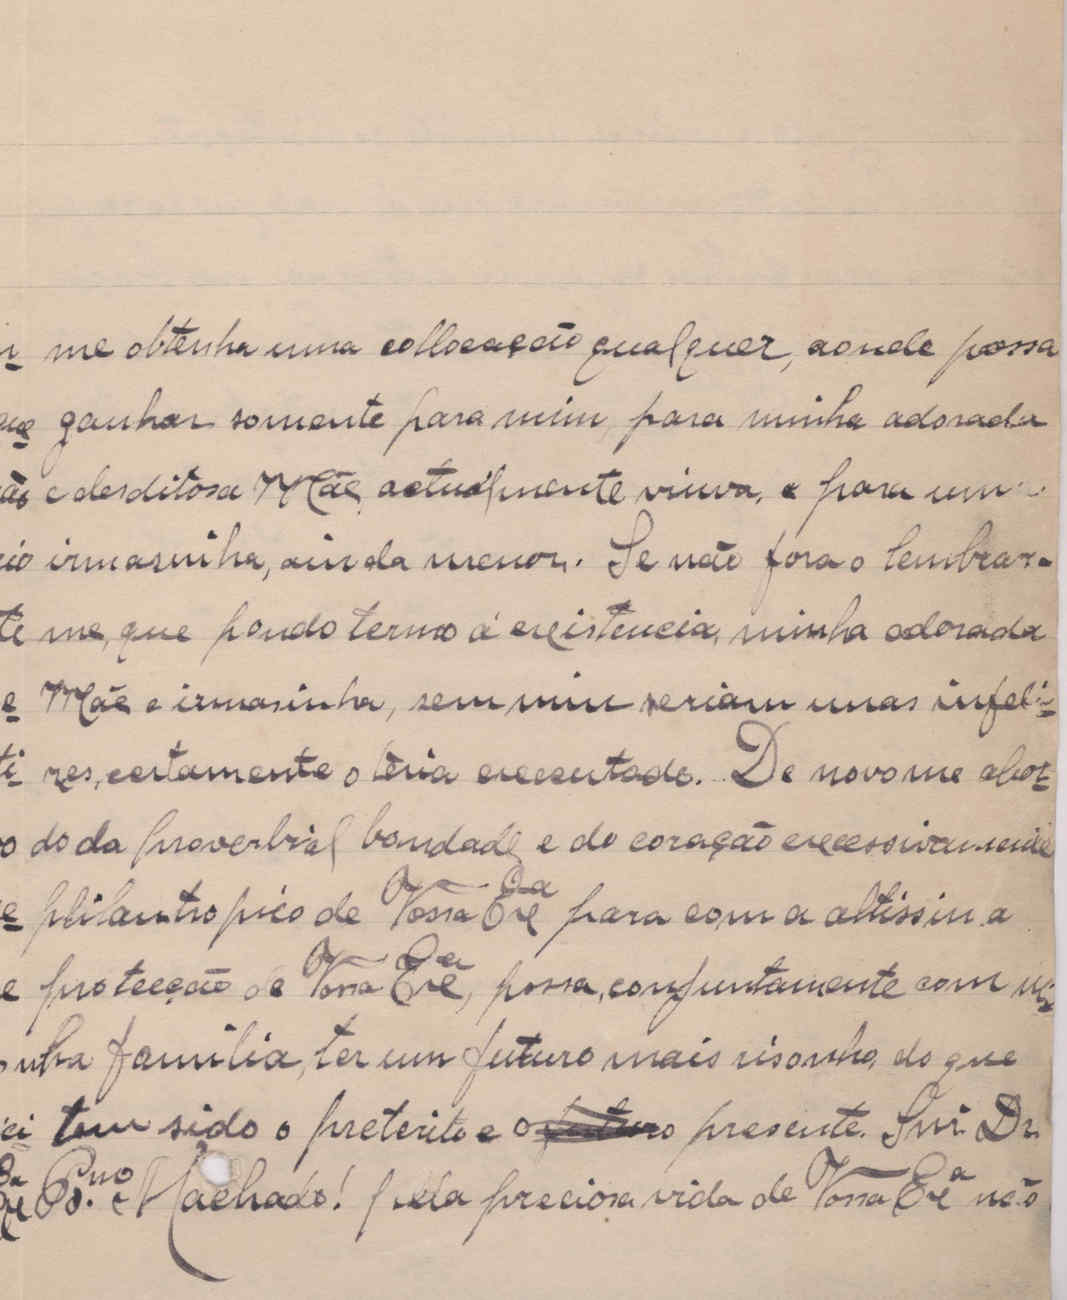 me obtenha uma collocação qualquer, aonde possa
ganhar somente para mim, para minha adorada
e desditosa Mãe, actualmente viuva, e para um
irmasinha, ainda menor. Se não fora o lembrar-
te me, que pondo termo á existencia, minha adorada
e Mãe e irmasinha, sem mim seriam umas infeli-
ti zes, certamente o teria executado. De novo me abor-
do da proverbial bondade e do coração excessivamente
e philantropico de Vossa Exª para com a altissima
e protecção de Vossa Exª, possa, conjuntamente com mi-
nha familia, ter um futuro mais risonho, do que
tem sido o preterito e o futuro presente. Snr. Dr.
Machado! pela preciosa vida de Vossa Exª não